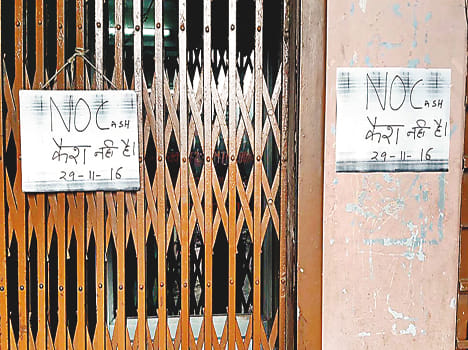 NO CASH
कैश नहीं है।
29-11-16
NO CASH
कैश नहीं है।
29-11-16